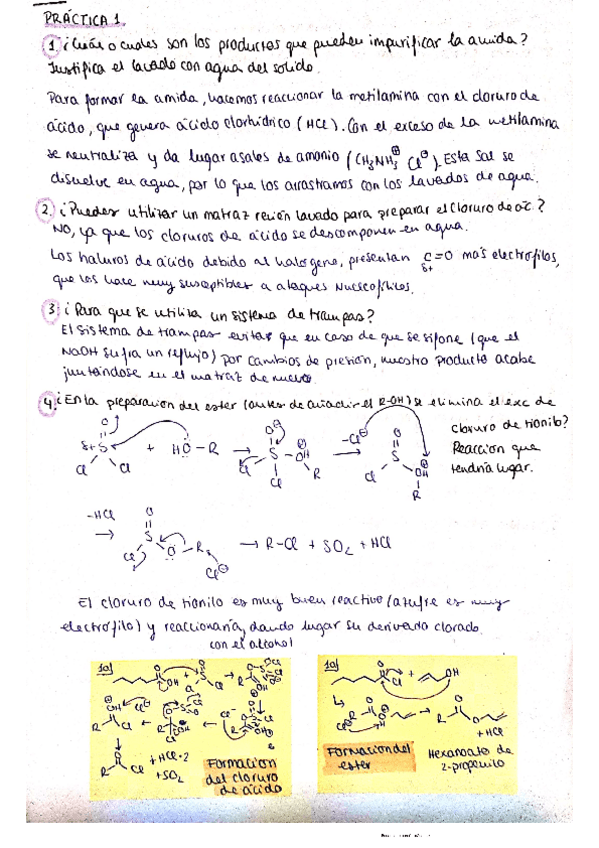 PRÁCTICA 1.
1. ¿Cuál o cuales son los productos que pueden impurificar la amida?
Justifica el lavado con agua del sólido.
Para formar la amida, hacemos reaccionar la metilamina con el cloruro de
ácido, que genera ácido clorhídrico (HCl). Con el exceso de la metilamina
se neutraliza y da lugar a sales de amonio (CH3NH3⊕ Cl⊖). Esta sal se
disuelve en agua, por lo que los arrastramos con los lavados de agua.
2. ¿Puedes utilizar un matraz recién lavado para preparar el cloruro de ác.?
NO, ya que los cloruros de ácido se descomponen en agua.
Los haluros de ácido debido al halógeno, presentan C=O más electrófilos,
δ+
que los hace muy susceptibles a ataques nucleofílicos.
3. ¿Para que se utiliza un sistema de trampas?
El sistema de trampas evitar que en caso de que se sifone (que el
NaOH sufra un reflujo) por cambios de presión, nuestro producto acabe
juntándose en el matraz de nuevo.
4. ¿En la preparación del ester (antes de añadir el R-OH) se elimina el exc de
cloruro de tionilo?
Reacción que
tendría lugar.
O
δ+ S
Cl Cl
+ HO-R
O⊖
S-OH⊕
Cl Cl R
-Cl⊖
O
S
Cl OH⊕
R
-HCl
O
S
Cl O-R
Cl⊖
R-Cl + SO2 + HCl
El cloruro de tionilo es muy buen reactivo (azufre es muy
electrófilo) y reaccionaría, dando lugar su derivado clorado.
con el alcohol
10)
+ HCl·2
+ SO2
Formacion
del cloruro
de ácido
10)
+ OH
+ HCl
Formacion del
ester
Hexanoato de
2-propenilo